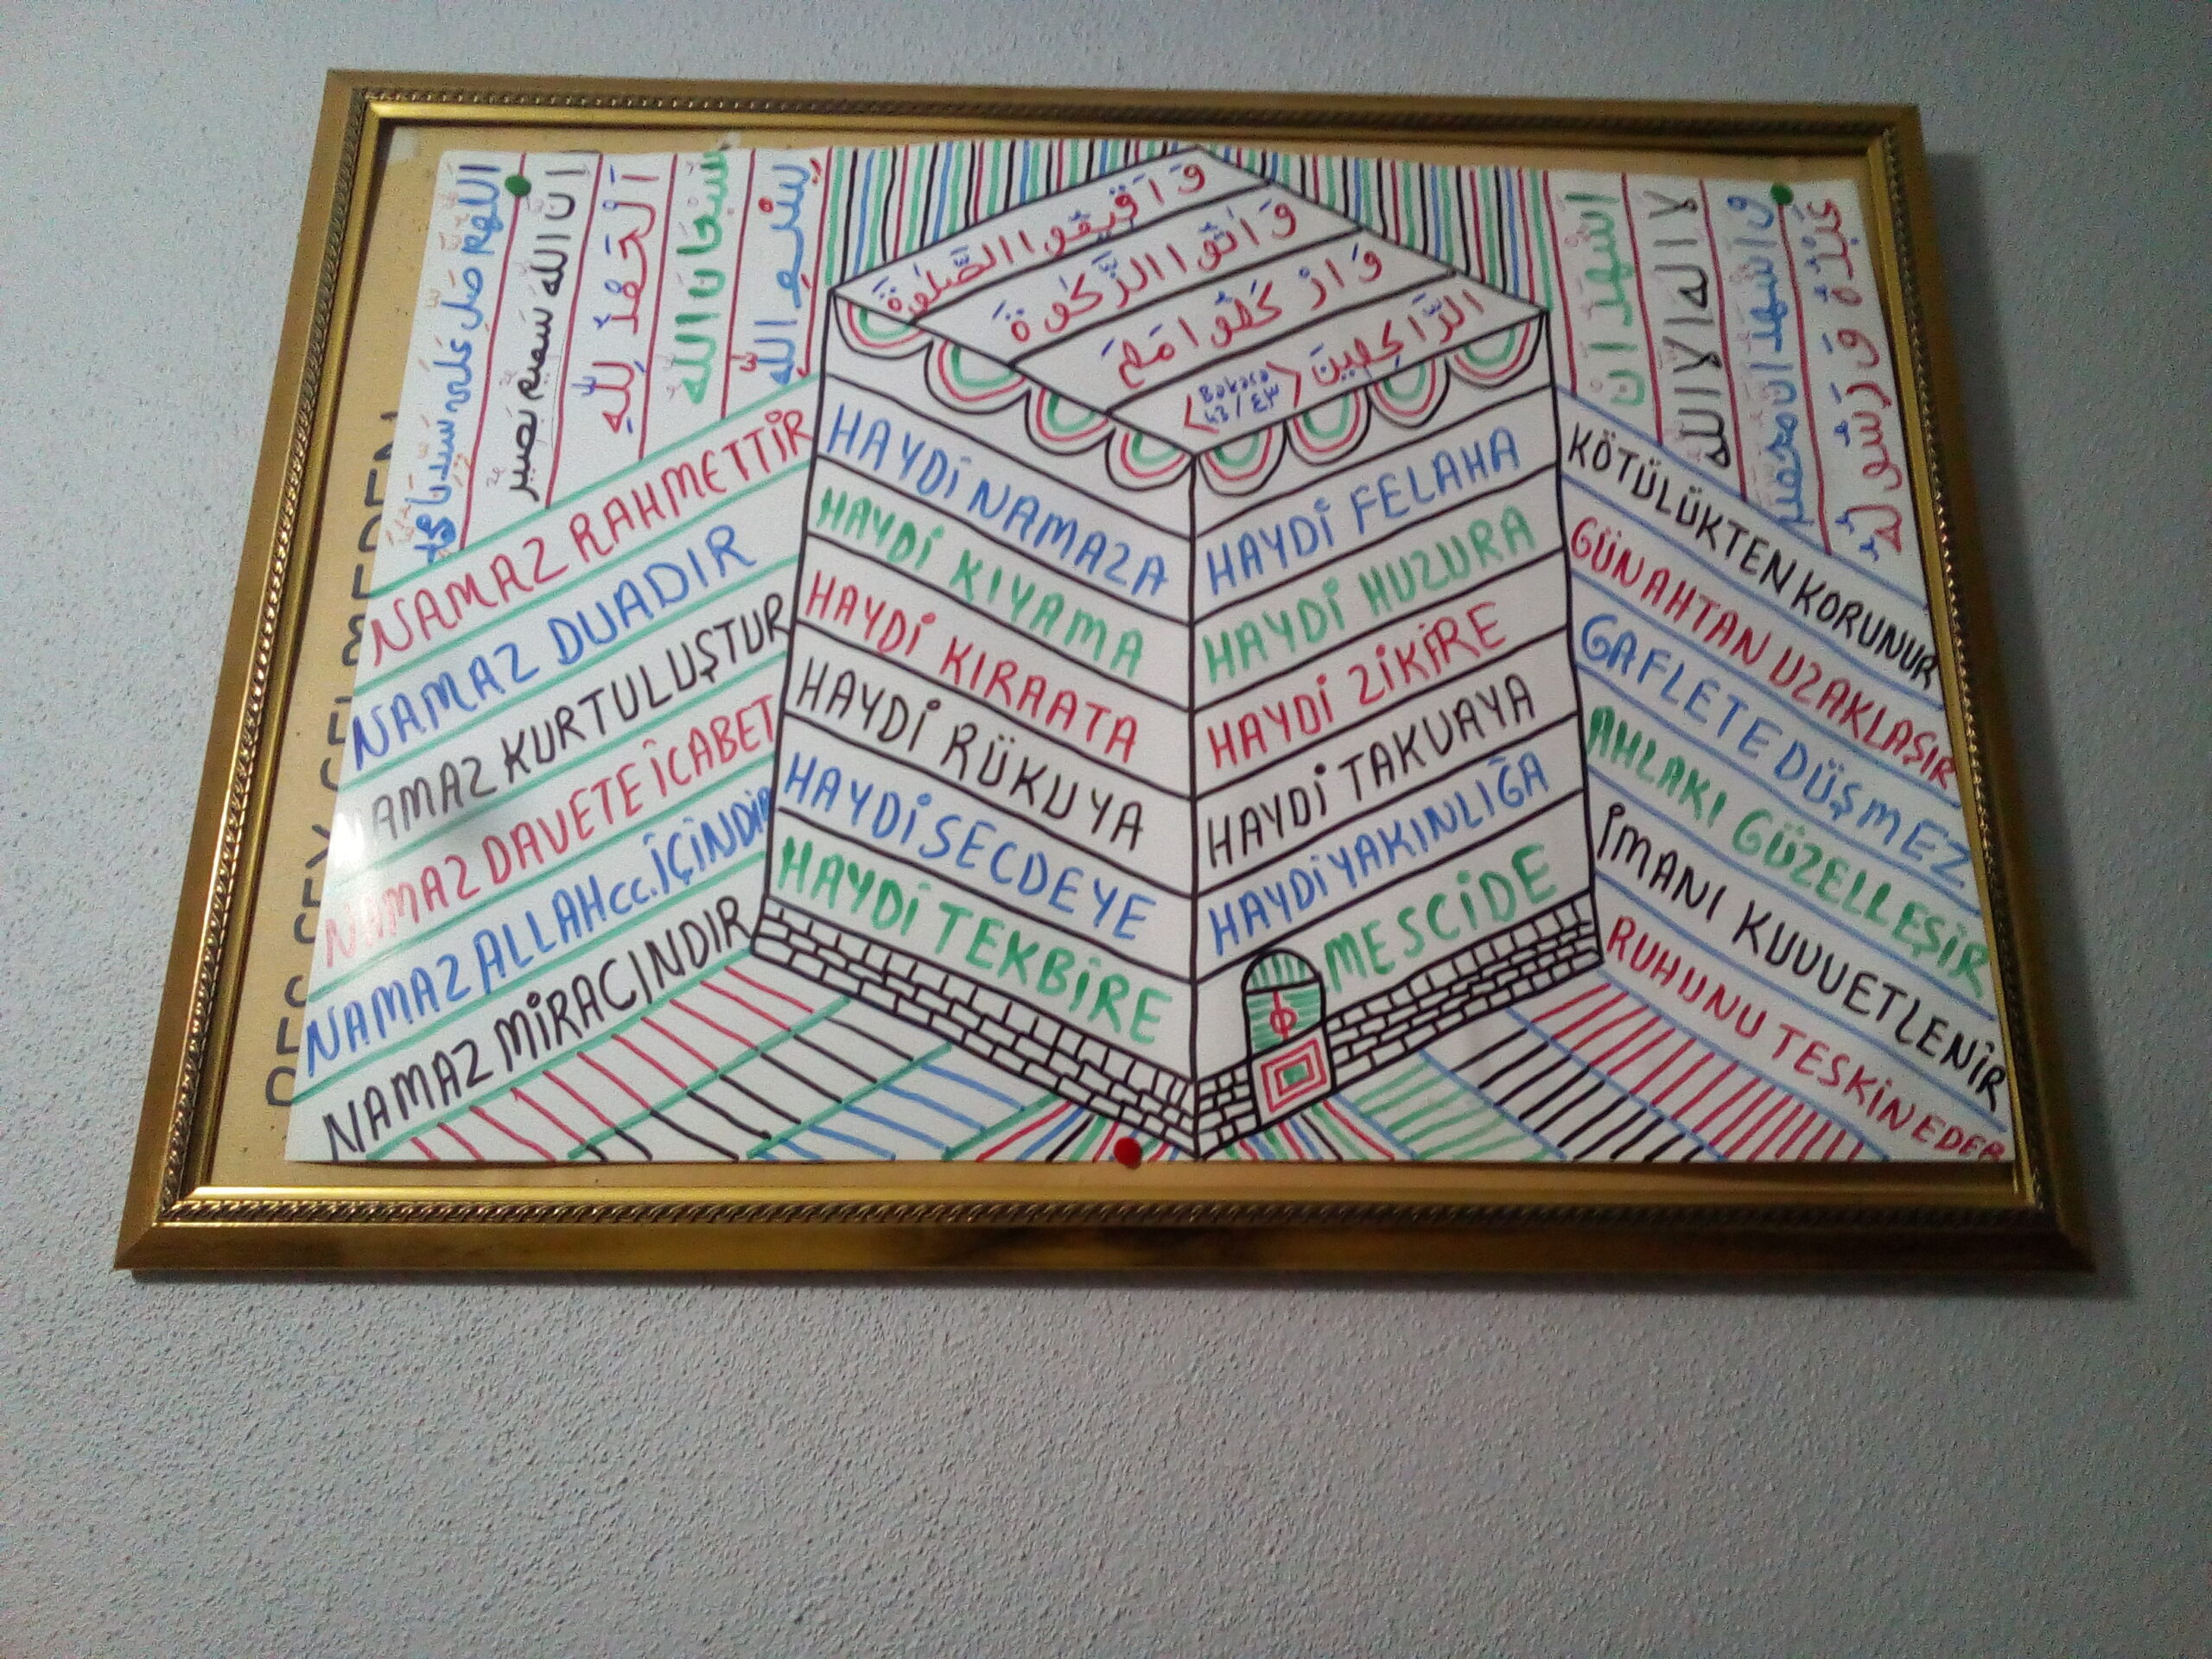 اللهم صل على سيدنا محمد
ان الله سميع بصير
اَلْحَمْدُ لِلّٰهِ
سُبْحَانَ اللّٰه
بِسْــمِ اللّٰه
وَ اَقٖيمُوا الصَّلٰوةَ
وَ اٰتُوا الزَّكٰوةَ
وَ ارْكَعُوا مَعَ
الرَّاكِعٖينَ
Bakara
43 / ٤٣
اَشْهَدُ اَنْ
لا اله الا الله
و اشهد ان محمد
عَبْدُهُ وَ رَسُولُهُ
NAMAZ RAHMETTİR
NAMAZ DUADIR
NAMAZ KURTULUŞTUR
NAMAZ DAVETE İCABET
NAMAZ ALLAH cc. İÇİNDİR
NAMAZ MİRACINDIR
HAYDİ NAMAZA
HAYDİ KIYAMA
HAYDİ KIRAATA
HAYDİ RÜKUYA
HAYDİ SECDEYE
HAYDİ TEKBİRE
HAYDİ FELAHA
HAYDİ HUZURA
HAYDİ ZİKİRE
HAYDİ TAKVAYA
HAYDİ YAKINLIĞA
MESCİDE
KÖTÜLÜKTEN KORUNUR
GÜNAHTAN UZAKLAŞIR
GAFLETE DÜŞMEZ
AHLAKI GÜZELLEŞİR
İMANI KUVVETLENİR
RUHUNU TESKİN EDER